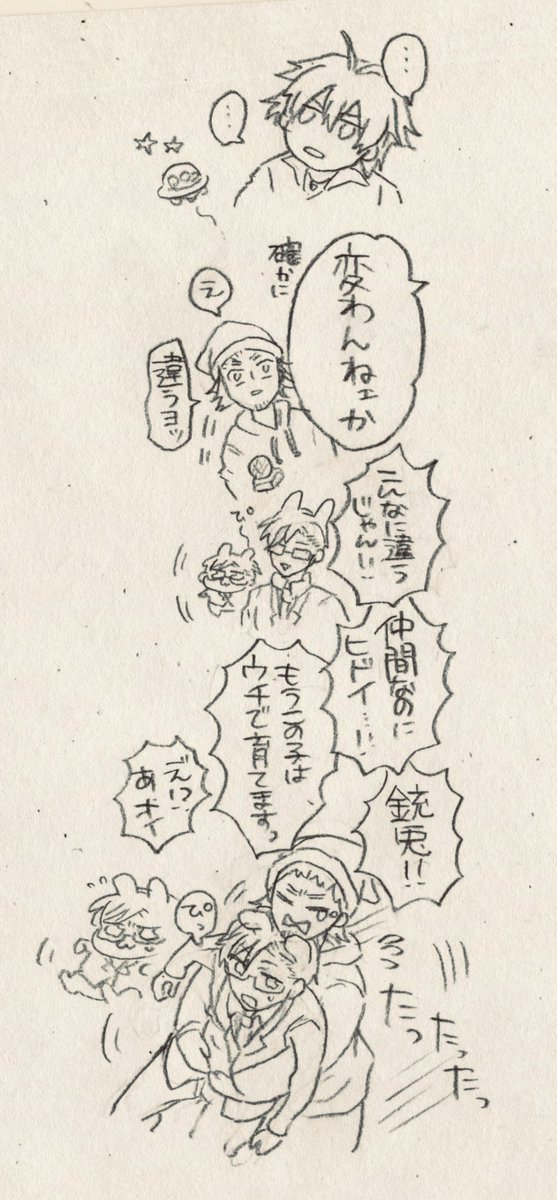 …
…
変わんねェか
確かに
え
違うヨッ
こんなに違う
じゃん!!
ぴ〜
仲間なのに
ヒドイ…!!
もうこの子は
ウチで育てますっ
えっ!?
あオイ
銃兎!!
ぴ
たっ
たっ
たっ